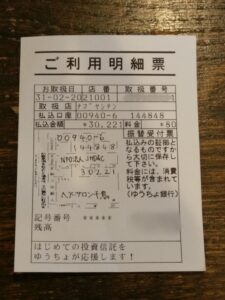 ご利用明細票
お取扱日 店番 取扱番号
31-02-20 21001
取扱店
払込口座 00940-6 144848
払込金額 *30,221 料金 *80
00940-6
144848
NPO法人
30221
振替受付票
払込みの証拠と
なるものですか
ら大切に保存し
て下さい。
料金には、消費
税等が含まれて
います。
(ゆうちょ銀行)
記号番号 *****
残高
はじめての投資信託を
ゆうちょが応援します!